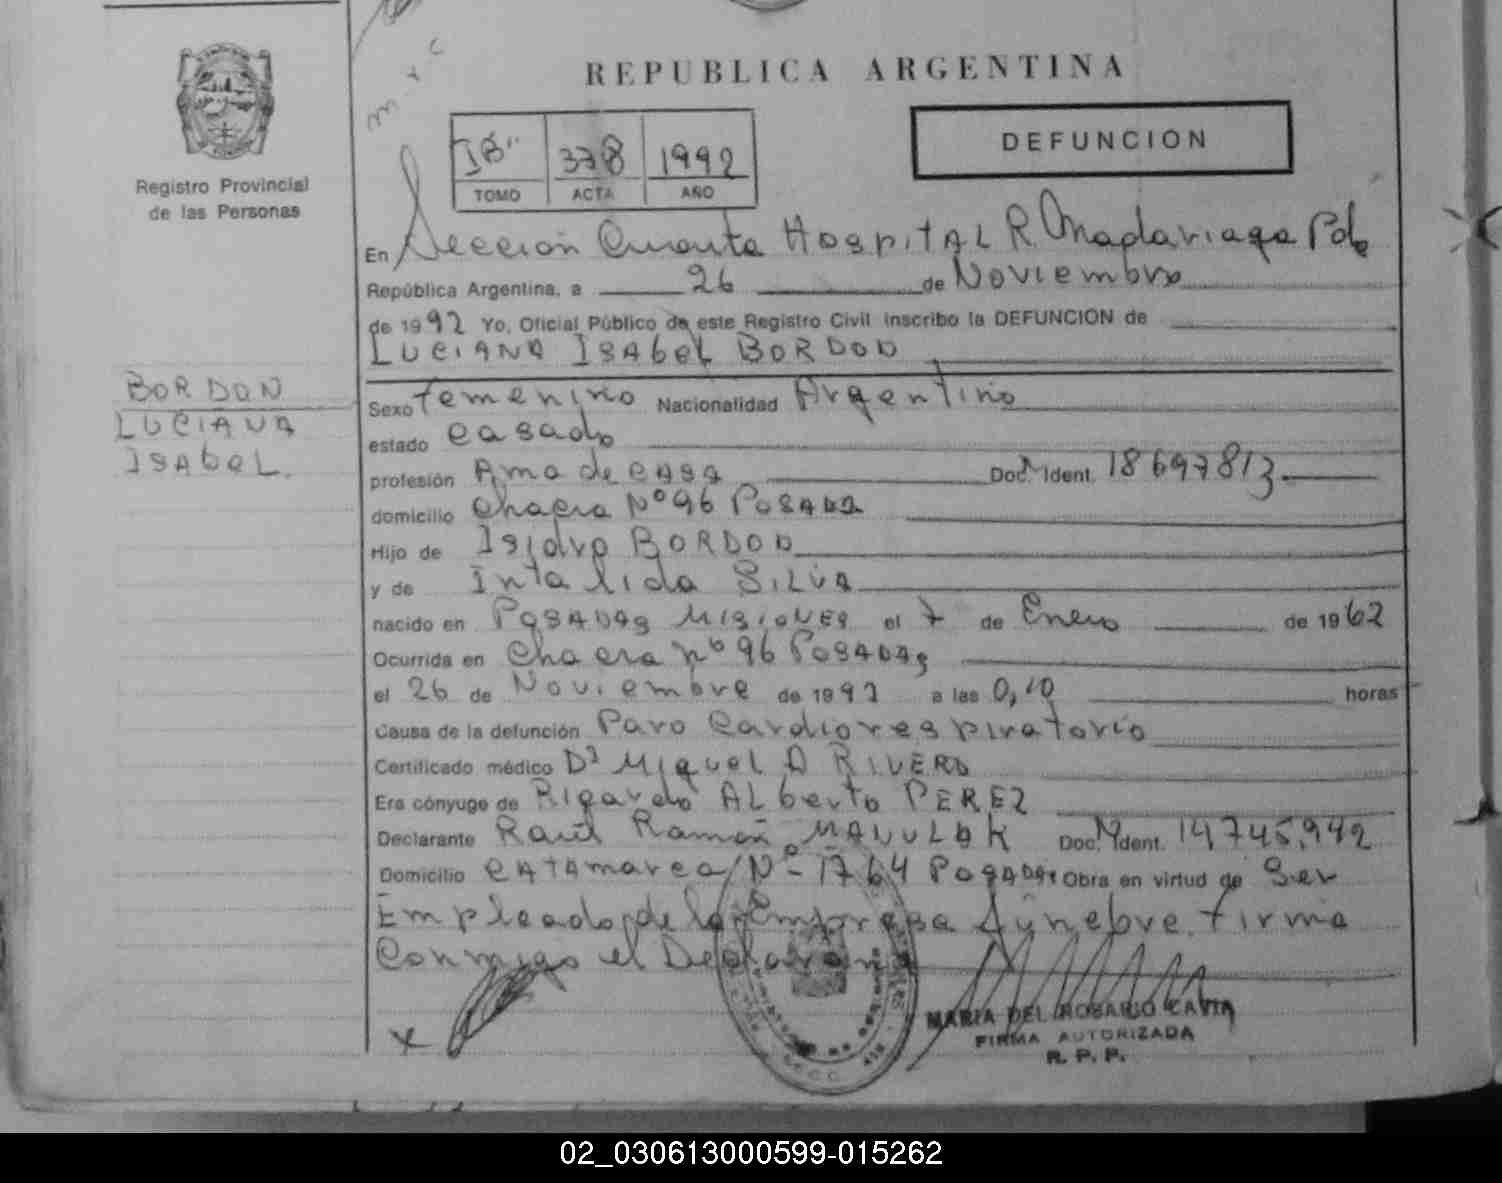 REPUBLICA ARGENTINA
Registro Provincial
de las Personas
IB" 378 1992
TOMO ACTA AÑO
DEFUNCION
En Sección Cuarta Hospital R. Madariaga Pdas
República Argentina, a 26 de Noviembre
de 1992 Yo, Oficial Público de este Registro Civil inscribo la DEFUNCION de
LUCIANA ISABEL BORDON
BORDON
LUCIANA
ISABEL.
Sexo Femenino Nacionalidad Argentino
estado casado
profesión Ama de casa Doc. Ident. 18697813
domicilio Chacra Nº 96 Posadas
Hijo de Isidro BORDON
y de Intalida SILVA
nacido en Posadas Misiones el 7 de Enero de 1962
Ocurrida en Chacra nº 96 Posadas
el 26 de Noviembre de 1992 a las 0,10 horas
Causa de la defunción Paro Cardiorespiratorio
Certificado médico Dr Miguel A RIVERO
Era cónyuge de Ricardo Alberto PEREZ
Declarante Raúl Ramón MANULAK Doc. Ident. 14,745,942
Domicilio Catamarca Nº 1764 Posadas Obra en virtud de Ser
Empleado de la Empresa fúnebre. firma
Conmigo el Declarante
MARIA DEL ROSARIO CAVIA
FIRMA AUTORIZADA
R. P. P.
02_030613000599-015262